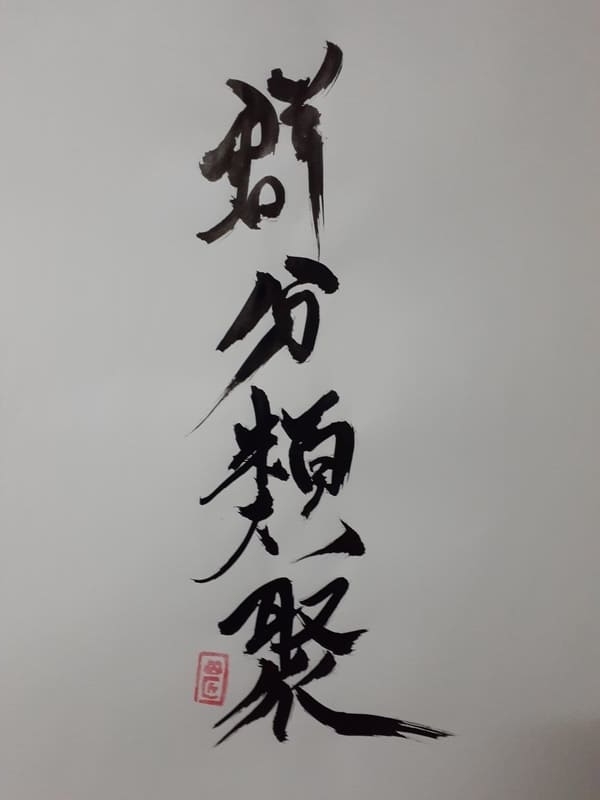 群分類聚